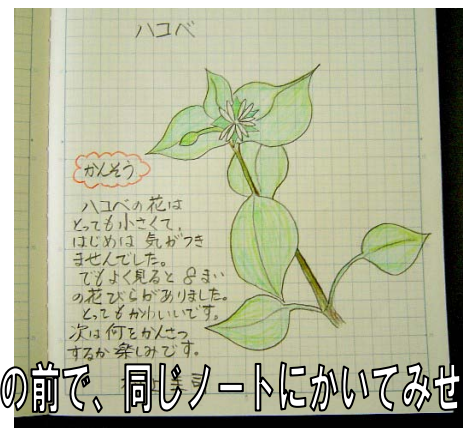 ハコベ
かんそう
ハコベの花は
とっても小さくて、
はじめは気がつき
ませんでした。
でもよく見ると8まい
の花びらがありました。
とってもかわいいです。
次は何をかんさつ
するか楽しみです。
の前で、同じノートにかいてみせ